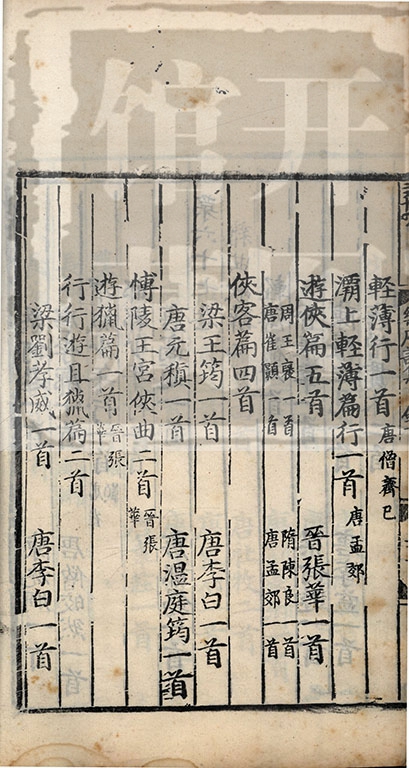 輕薄行一首唐僧齊已
灞上輕薄篇行一首唐孟郊
遊俠篇五首　晉張華一首
周王襃一首　隋陳良一首
唐崔顥一首　唐孟郊一首
俠客篇四首
梁王筠一首　唐李白一首
唐元稹一首　唐温庭筠一首
博陵王宮俠曲二首晉張華
遊獵篇一首晉張華
行行遊且獵篇二首
梁劉孝威一首　唐李白一首